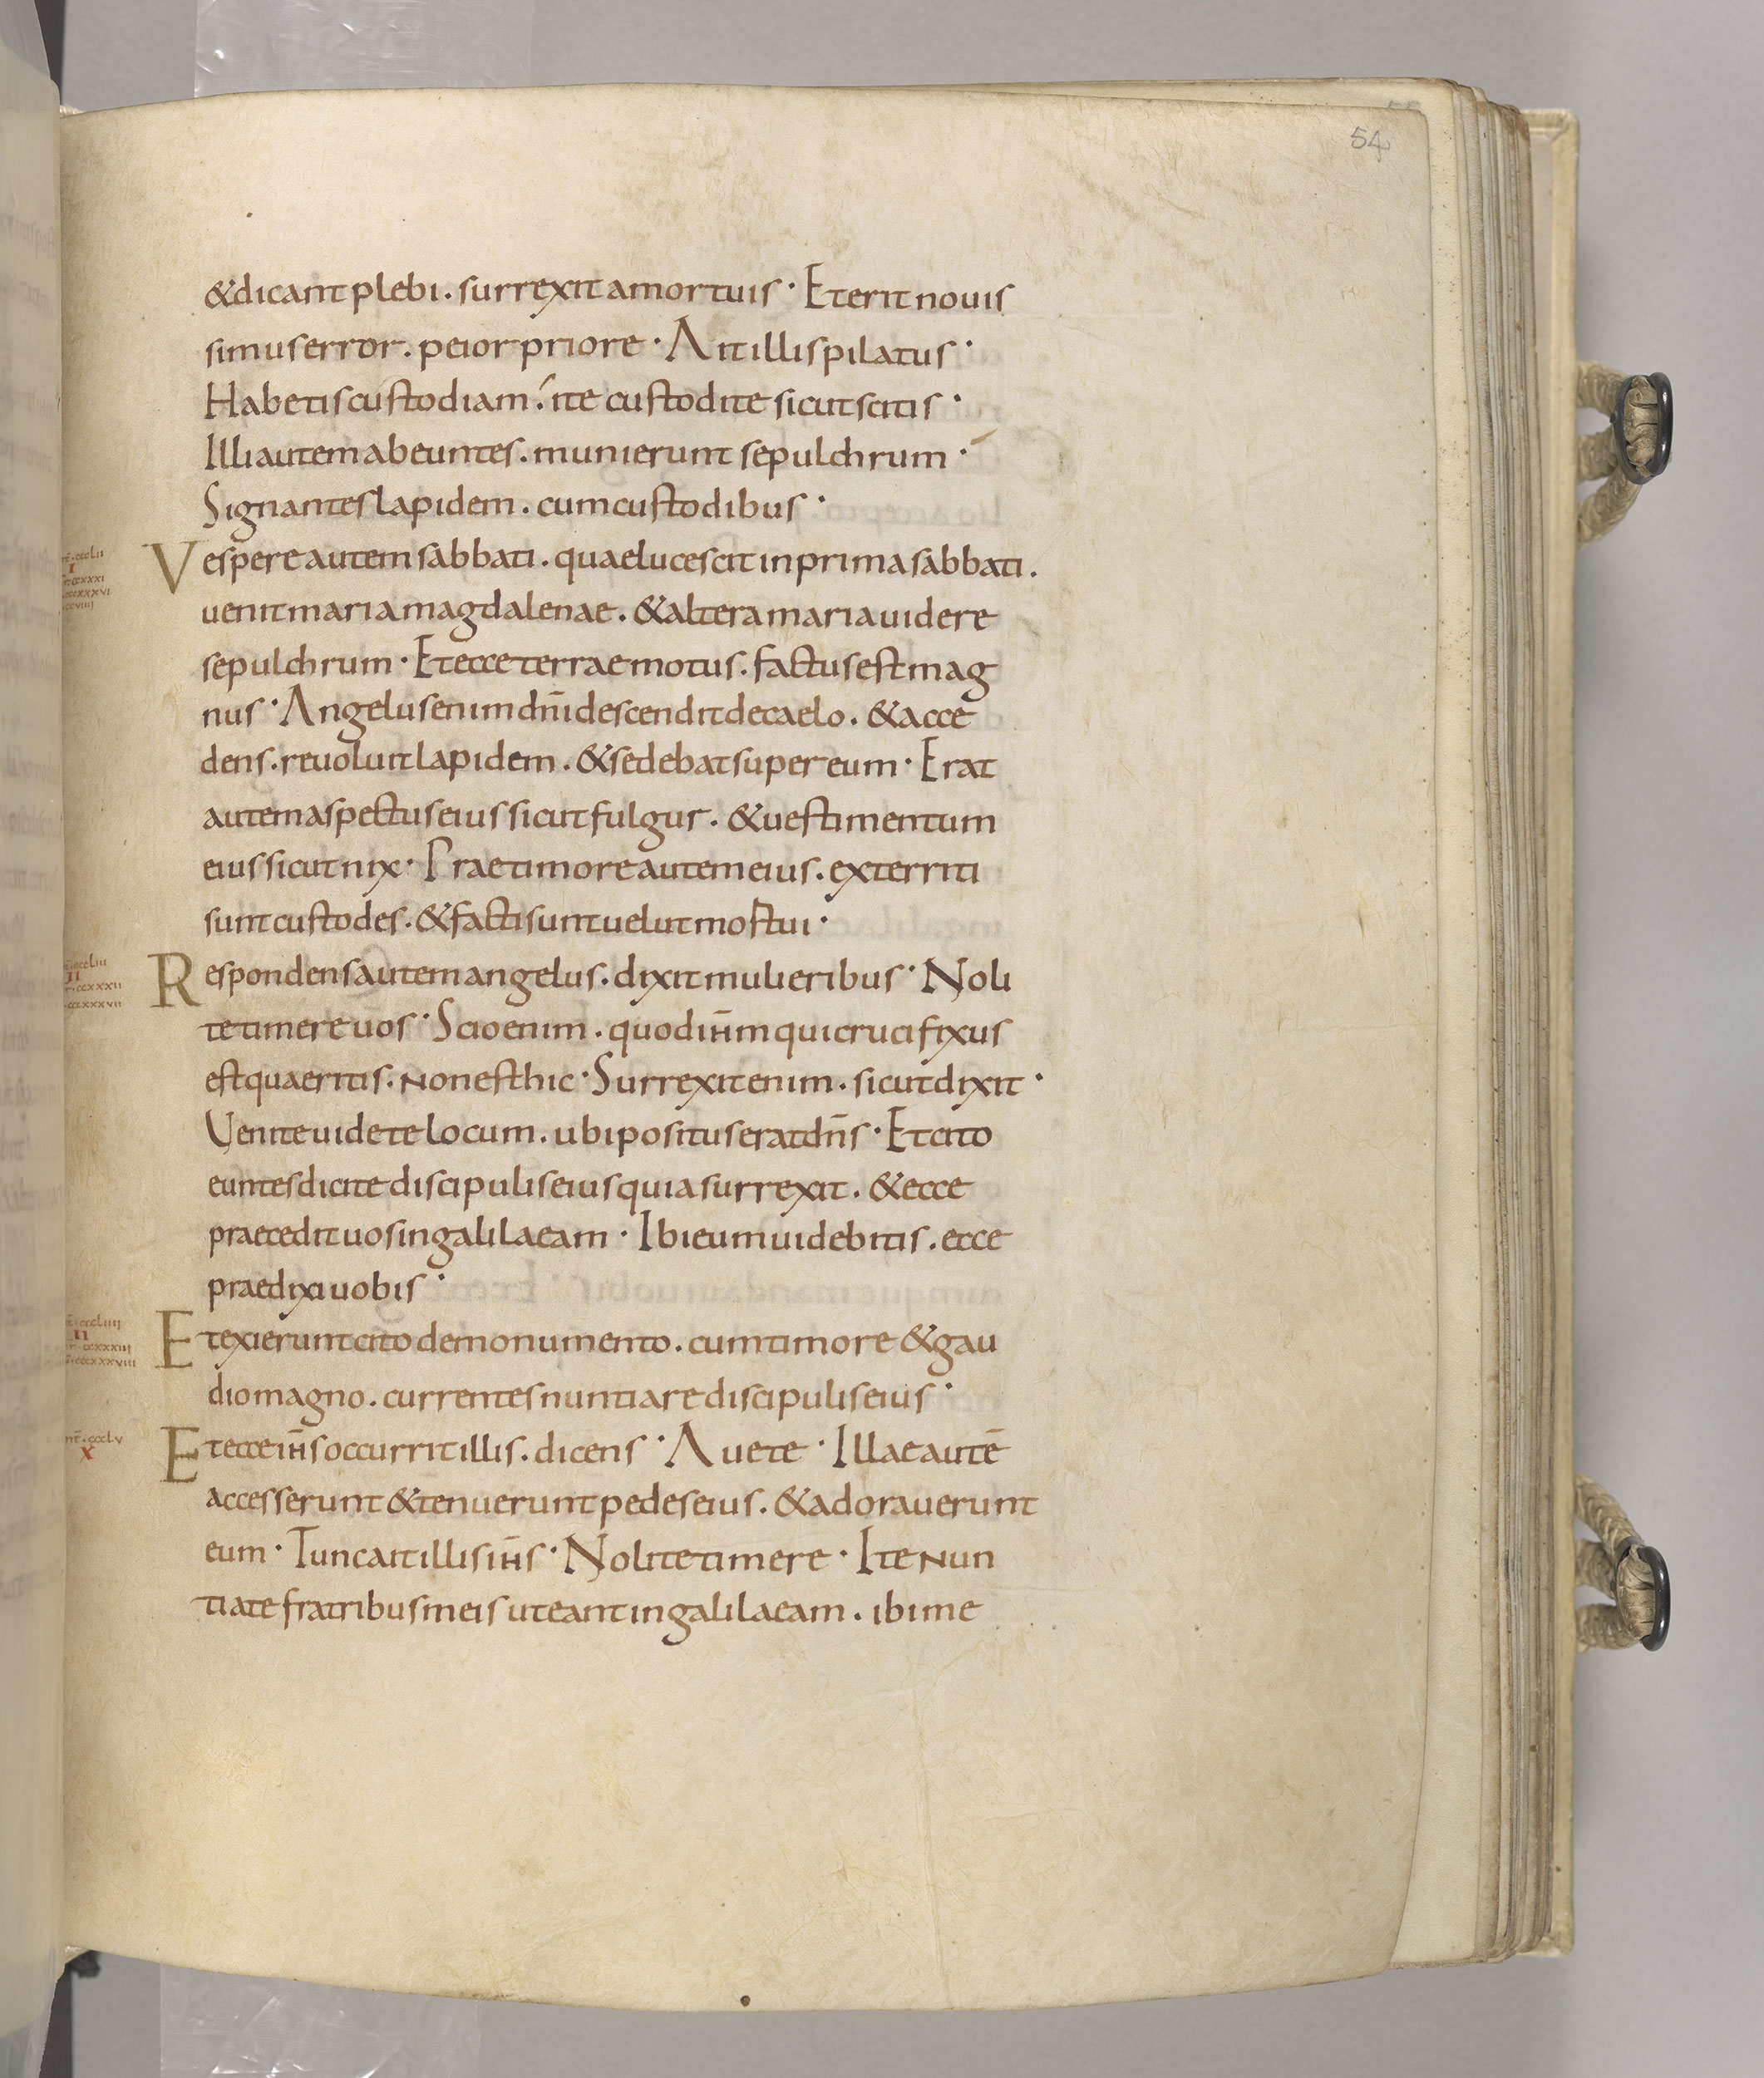 54
&dicant plebi. surrexit amortuis· Eterit nouis
simus error. peior priore· Ait illis pilatus·
Habetis custodiam. ite custodite sicut scitis·
Illi autem abeuntes. munierunt sepulchrum·
Signantes lapidem. cum custodibus·
Vespere autem sabbati. quae lucescit in prima sabbati.
uenit maria magdalenae. &altera maria uidere
sepulchrum· Et ecce terrae motus. factus est mag
nus· Angelus enim dn̄i descendit decaelo. &acce
dens. reuoluit lapidem. &sedebat super eum· Erat
autem aspectus eius sicut fulgur. &uestimentum
eius sicut nix· Prae timore autem eius. exterriti
sunt custodes. &facti sunt uelut mortui·
Respondens autem angelus. dixit mulieribus· Noli
te timere uos· Scio enim. quod ihm̄ qui crucifixus
est quaeritis. non est hic· Surrexit enim. sicut dixit·
Venite uidete locum. ubi positus erat dn̄s· Et cito
euntes dicite discipulis eius quia surrexit. &ecce
praecedit uos in galilaeam· Ibi eum uidebitis. ecce
praedixi uobis·
Et exierunt cito de monumento. cum timore &gau
dio magno. currentes nuntiare discipulis eius·
Et ecce ih̄s occurrit illis. dicens· Auete· Illae autē
accesserunt &tenuerunt pedes eius. &adorauerunt
eum· Tunc ait illis ih̄s· Nolite timere· Ite nun
tiate fratribus meis ut eant in galilaeam. ibi me